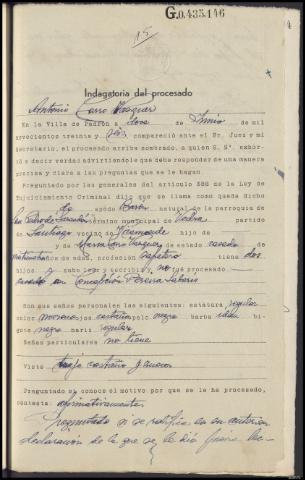 G.0.435.146
15
Indagatoria del procesado
Antonio Carro Vazquez
En la Villa de Padrón a doce de Junio de mil
novecientos treinta y seis compareció ante el Sr. Juez y mi
secretario, el procesado arriba nombrado, a quien S. Sª. exhor-
tó a decir verdad advirtiendole que debe responder de una manera
precisa y clara a las preguntas que se le hagan.
Preguntado por las generales del artículo 388 de la Ley de
Enjuiciamiento Criminal dijo que se llama como queda dicho
de apodo natural de la parroquia de
San Pedro de termino municipal de partido
de Santiago vecino de hijo de
y de Maria de estado casado de
de edad, profesion zapatero tiene dos
hijos y sabe leer y escribir y no fué procesado.
casado con Concepción Pereira
Son sus señas personales las siguientes: estatura regular
color moreno ojos castaños pelo negro barba idem bi-
gote negro nariz regular
Señas particulares no tiene
Viste traje castaño
Preguntado si conoce el motivo por que se le ha procesado,
contesta: afirmativamente
Preguntado si se ratifica en su anterior
declaración de la que se le dió lec-